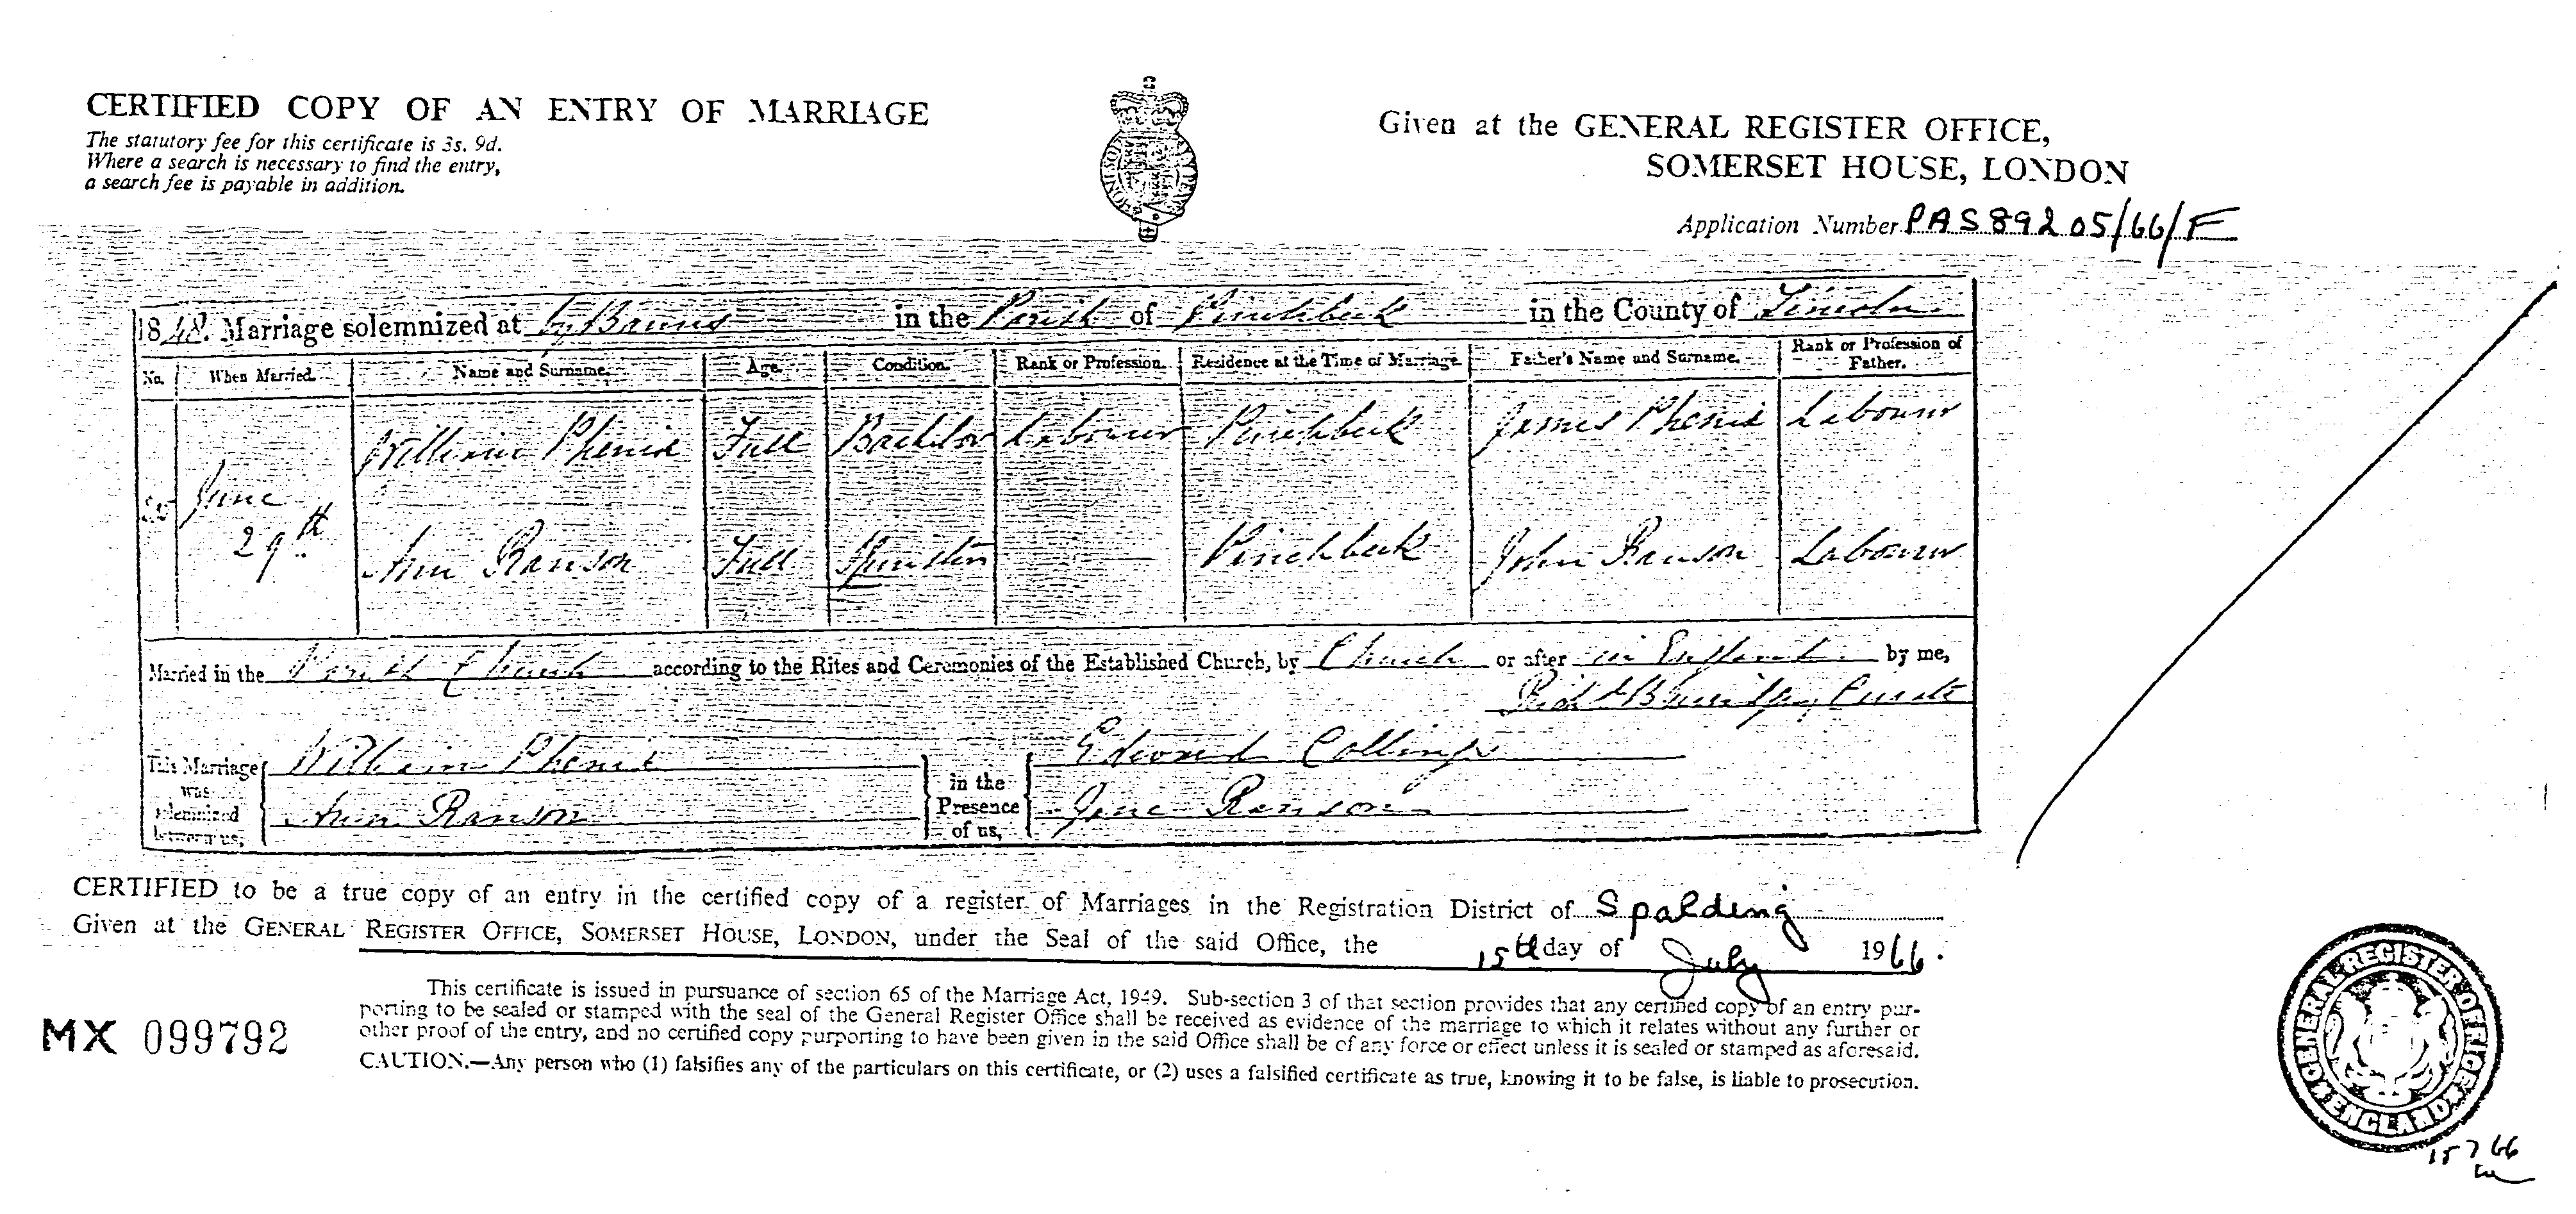 CERTIFIED COPY OF AN ENTRY OF MARRIAGE
The statutory fee for this certificate is 3s. 9d.
Where a search is necessary to find the entry,
a search fee is payable in addition.
Given at the GENERAL REGISTER OFFICE,
SOMERSET HOUSE, LONDON
Application Number PAS89205/66/F
1848. Marriage solemnized at by Banns in the Parish of Pinchbeck in the County of Lincoln
No. When Married. Name and Surname. Age. Condition. Rank or Profession. Residence at the Time of Marriage. Father's Name and Surname. Rank or Profession of Father.
William Phenix Full Bachelor Labourer Pinchbeck James Phenix Labourer
June
29th
Ann Ranson Full Spinster Pinchbeck John Ranson Labourer
Married in the Parish Church according to the Rites and Ceremonies of the Established Church, by Church or after in England by me,
Curate
This Marriage was solemnized between us,
William Phenix
Ann Ranson
in the Presence of us,
Edward Collings
Jane Ranson
CERTIFIED to be a true copy of an entry in the certified copy of a register of Marriages in the Registration District of Spalding
Given at the GENERAL REGISTER OFFICE, SOMERSET HOUSE, LONDON, under the Seal of the said Office, the 15th day of July 1966.
This certificate is issued in pursuance of section 65 of the Marriage Act, 1949. Sub-section 3 of that section provides that any certified copy of an entry pur-
porting to be sealed or stamped with the seal of the General Register Office shall be received as evidence of the marriage to which it relates without any further or
other proof of the entry, and no certified copy purporting to have been given in the said Office shall be of any force or effect unless it is sealed or stamped as aforesaid.
CAUTION.—Any person who (1) falsifies any of the particulars on this certificate, or (2) uses a falsified certificate as true, knowing it to be false, is liable to prosecution.
MX 099792
GENERAL REGISTER OFFICE
ENGLAND
15 7 66